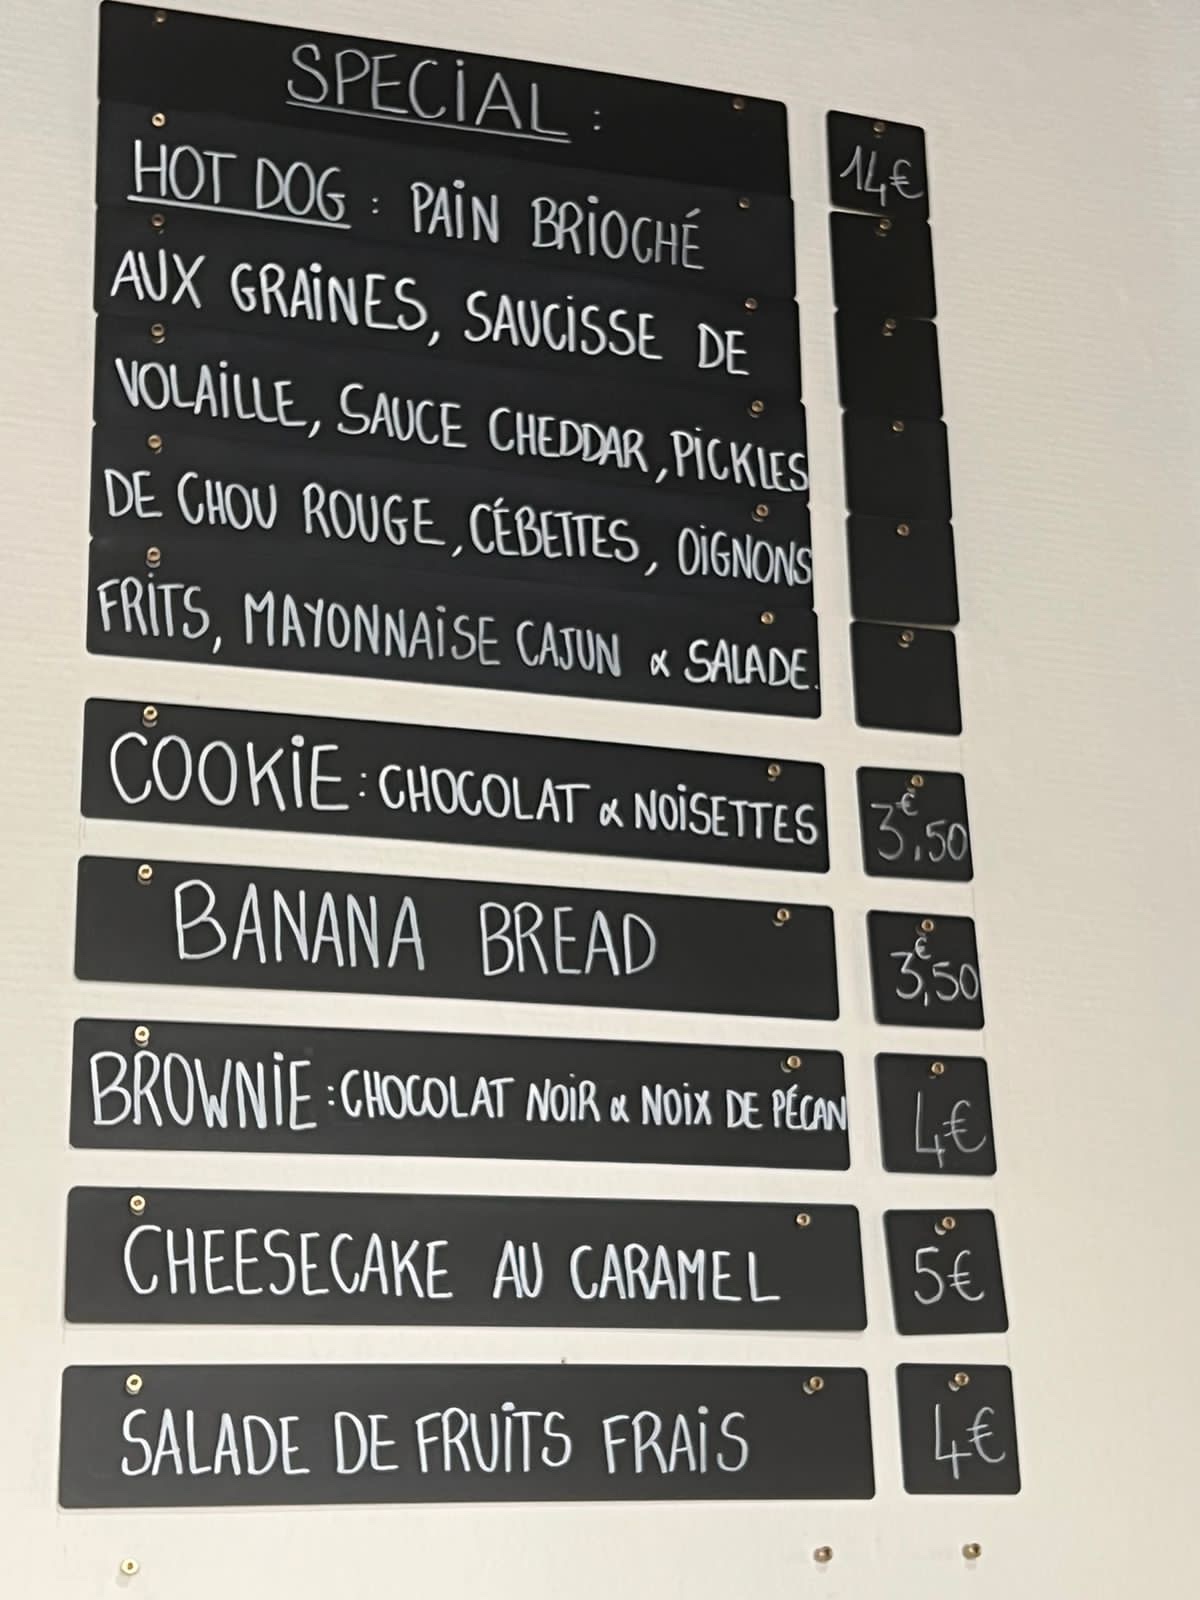 SPECIAL :
14€
HOT DOG : PAIN BRIOCHÉ
AUX GRAINES, SAUCISSE DE
VOLAILLE, SAUCE CHEDDAR, PICKLES
DE CHOU ROUGE, CÉBETTES, OIGNONS
FRITS, MAYONNAISE CAJUN & SALADE.
COOKIE : CHOCOLAT & NOISETTES
3€,50
BANANA BREAD
3€,50
BROWNIE : CHOCOLAT NOIR & NOIX DE PÉCAN
4€
CHEESECAKE AU CARAMEL
5€
SALADE DE FRUITS FRAIS
4€